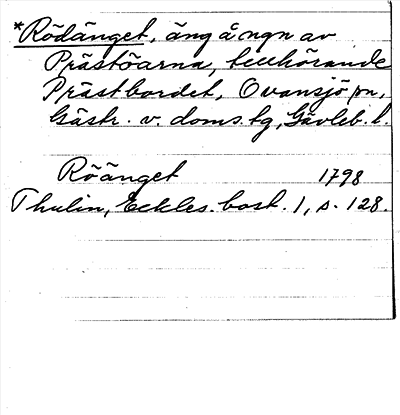 *Rödänget, äng å ngn av
Prästöarna, tillhörande
Prästbordet, Ovansjö sn,
Gästr. v. doms.tg, Gävleb. l.
Röänget 1798
Thulin, Eckles. bost. 1, s. 128.